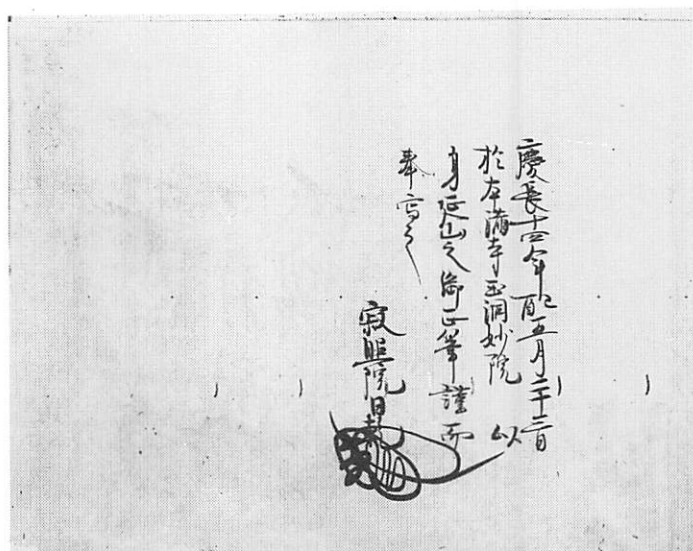 慶長十四年己酉五月二十三日
於本満寺玉洞妙院以
身延山之御正筆謹而
奉写之
寂照院日乾